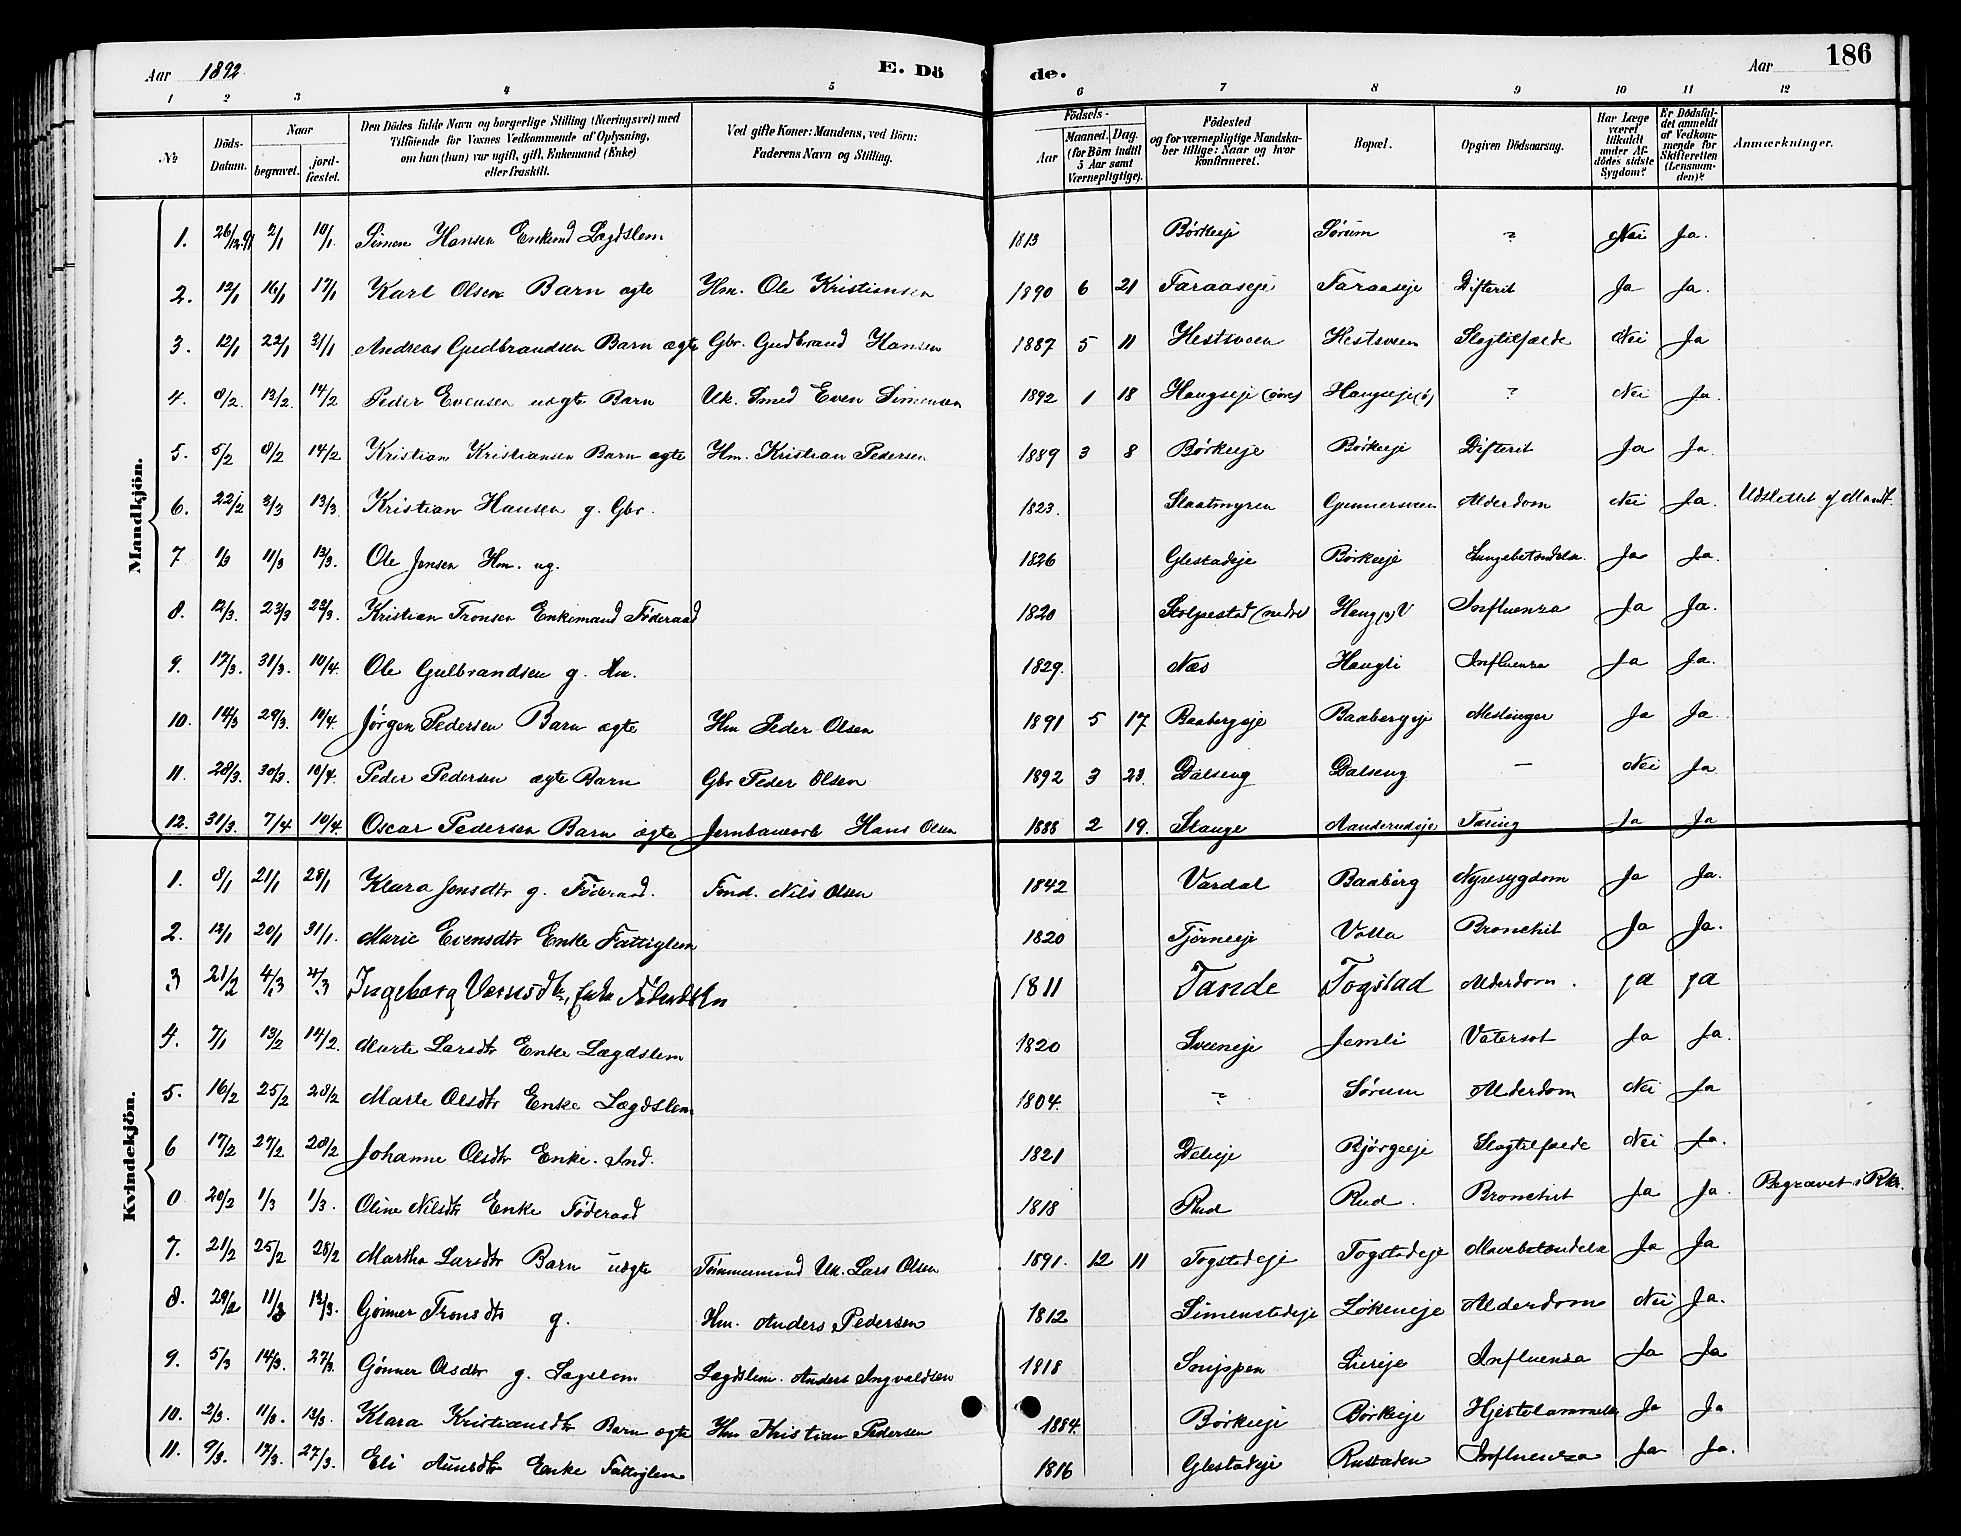 Aar 1892. E. Dö de. Aar 186
1 2 3 4 5 6 7 8 9 10 11 12
№ Döds-Datum. Naar begravet. jord-fæstet. Den Dödes fulde Navn og borgerlige Stilling (Næringsvei) med Tilföiende for Voxnes Vedkommende af Oplysning, om han (hun) var ugift, gift, Enkemand (Enke) eller fraskilt. Ved gifte Koner: Mandens, ved Börn: Faderens Navn og Stilling. Födsels- Aar Maaned. Dag. (for Börn indtil 5 Aar samt Værnepligtige). Födested og for værnepligtige Mandskaber tillige: Naar og hvor konfirmeret. Bopæl. Opgiven Dödsaarsag. Har Læge været tilkaldt under Afdödes sidste Sygdom? Er Dödsfaldet anmeldt af Vedkommende for Skifteretten (Lensmanden)? Anmærkninger.
Mandkjön.
1. 26/12 91 2/1 10/1. Simen Hansen Enkemd Lægdslem 1813 Börkeeje Sörum ? Nei Ja.
2. 12/1 16/1 17/1 Karl Olsen Barn ægte Hm. Ole Kristiansen 1890 6 21 Taraaseje Taraaseje Difterit Ja Ja.
3. 12/1 22/1 31/1 Andreas Gudbrandsen Barn ægte Gbr. Gudbrand Hansen 1887 5 11 Hestsveen Hestsveen Slagtilfælde Nei Ja
4. 8/2. 13/2. 14/2 Peder Evensen uægte Barn Uk. Smed Even Simensen 1892 1 18 Haugseje (övre) Haugseje (ö) ? Nei Ja.
5. 5/2 8/2 14/2 Kristian Kristiansen Barn ægte Hm. Kristian Pedersen 1889 3 8 Börkeeje Börkeeje Difterit Ja Ja.
6. 22/2 3/3 13/3. Kristian Hansen g. Gbr. 1823. Slaatmyren Gunnersveen Alderdom Nei Ja. Udslettet af Mandt.
7 1/3 11/3 13/3. Ole Jensen Hm. ug. 1826 Glestadeje Börkeeje Lungebetændelse Ja Ja.
8. 12/3. 23/3 23/3. Kristian Tronsen Enkemand Föderaad 1820 Stolpestad (nedre) Haug V Influenza Ja Ja.
9. 17/3. 31/3. 10/4. Ole Gulbrandsen g. Hm. 1829. Næs Haugli Influenza Ja Ja.
10. 14/3 29/3. 10/4. Jörgen Pedersen Barn ægte Hm Peder Olsen 1891 5 17. Baabergeje Baabergeje Meslinger Ja Ja.
11. 28/3. 30/3. 10/4. Peder Pedersen ægte Barn Gbr Peder Olsen 1892 3 23. Dalseng Dalseng — Nei Ja
12. 31/3. 7/4 10/4. Oscar Pedersen Barn ægte Jernbanearb Hans Olsen 1888 2 19. Stange Aanderudeje Tæring Ja Ja
Kvindekjön.
1. 8/1 21/1 28/1 Klara Jensdtr g. Föderaad. Fond. Nils Olsen 1842 Vardal Baaberg Nyresygdom Ja Ja.
2. 12/1 20/1 31/1. Marie Evensdtr Enke Fattiglem 1820 Tjörneeje Valla Bronchit Ja Ja.
3 21/2 4/3 4/3 Ingeborg 1811 Tande Togstad Alderdom. ja ja
4. 7/1 13/2 14/2. Marte Larsdtr Enke Lægdslem 1820 Sveeneje Jemli Vatersot Ja Ja.
5. 16/2 25/2 28/2 Marte Olsdtr Enke Lægdslem 1804. ? Sörum Alderdom Nei Ja
6 17/2 27/2 28/2 Johanne Olsdtr Enke. Ind. 1821 Deleje Bjørgeeje Slagtilfælde Nei Ja.
0 20/2 1/3 1/3. Oline Nilsdtr Enke Föderaad 1818 Rud Rud. Bronchit Ja Ja. Begravet i Rkr.
7. 21/2 25/2 28/2 Martha Larsdtr Barn uægte Tömmermand Uk. Lars Olsen 1891. 12 11 Togstadeje Togstadeje Mavebetændelse Ja Ja
8. 29/2 11/3 13/3. Gönner Tronsdtr g. Hm. Anders Pedersen 1812 Simenstadeje Lökeneje Alderdom Nei Ja.
9. 5/3 14/3. 27/3. Gönner Olsdtr g. Lægslem Lægdslem. Anders Ingvaldsen 1818 Snippen Liereje Influenza Ja Ja
10. 2/3. 11/3. 13/3. Klara Kristiansdtr Barn ægte Hm Kristian Pedersen 1884. Börkeeje Börkeeje Hjertelammelse Ja Ja
11. 9/3. 17/3. 27/3. Eli Enke Fattiglem 1816 Glestadeje Rustaden Influenza Ja Ja.